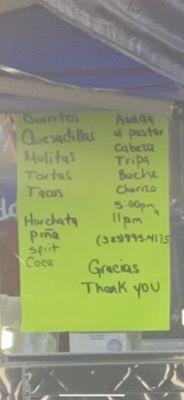 Burritos
Quesadillas
Mulitas
Tortas
Tacos
Horchata
piña
Sprit
Coca
Asada
al pastor
Cabeza
Tripa
Buche
Chorizo
5:00pm
11pm
Gracias
Thank you